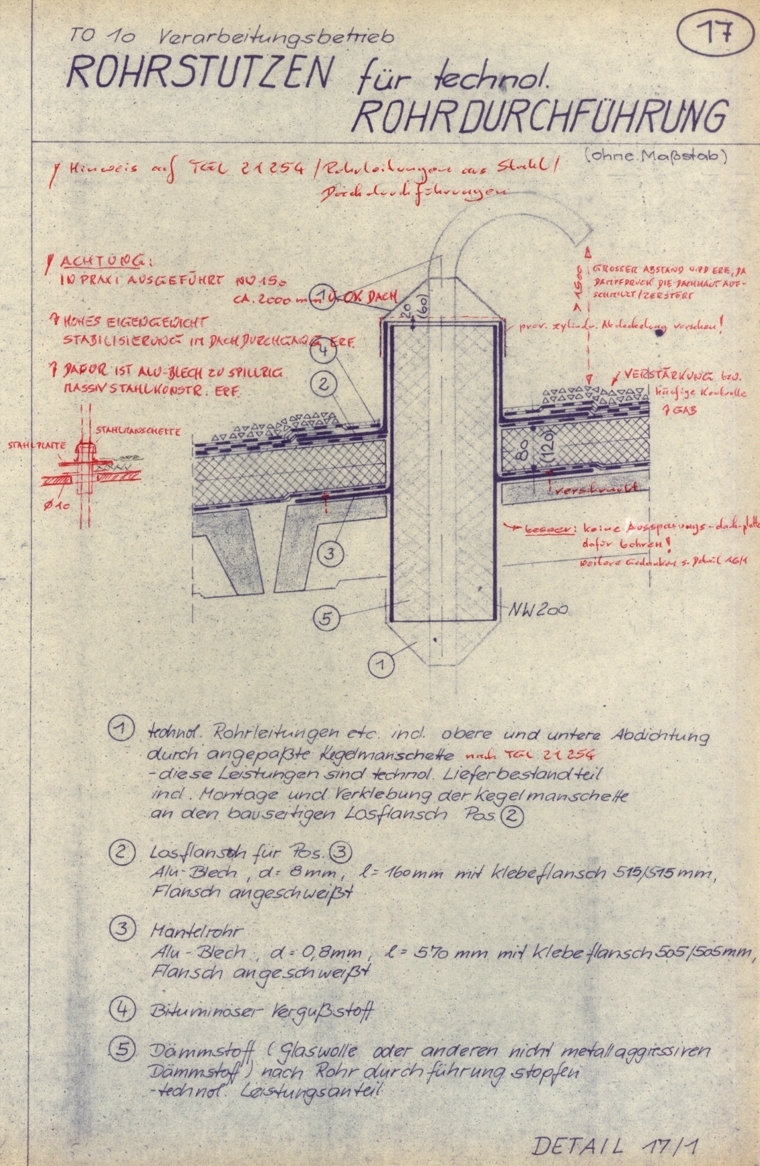 17
TO 10 Verarbeitungsbetrieb
ROHRSTUTZEN für technol.
ROHRDURCHFÜHRUNG
(ohne Maßstab)
Hinweis auf TGL 21254 / Rohrleitungen aus Stahl /
Dachdurchführungen
ACHTUNG:
IN PRAXI AUSGEFÜHRT NW 150
CA. 2000 mm Ü. OK DACH
HOHES EIGENGEWICHT
STABILISIERUNG IM DACHDURCHGANG ERF.
DAFÜR IST ALU-BLECH ZU SPILLRIG
MASSIVSTAHLKONSTR. ERF.
STAHLMANSCHETTE
STAHLPLATTE
Ø10
1
4
2
3
5
1
20
(60)
> 1500
GROSSER ABSTAND WIRD ERF., DA
DAMPFDRUCK DIE DACHHAUT AUF-
/ZERSTÖRT
prov. zylindr. Abdeckung vorsehen!
VERSTÄRKUNG bzw.
häufige Kontrolle
GAB
80
(120)
verschraubt
besser: keine Aussparungs-dach-platte
dafür bohren!
weitere Gedanken s. Detail
NW 200
1 technol. Rohrleitungen etc. incl. obere und untere Abdichtung
durch angepaßte Kegelmanschette nach TGL 21254
- diese Leistungen sind technol. Lieferbestandteil
incl. Montage und Verklebung der Kegelmanschette
an den bauseitigen Losflansch Pos. 2
2 Losflansch für Pos. 3
Alu-Blech, d= 8mm, l= 160mm mit Klebeflansch 515/515mm,
Flansch angeschweißt
3 Mantelrohr
Alu-Blech, d= 0,8mm, l= 570 mm mit Klebeflansch 505/505mm,
Flansch angeschweißt
4 Bituminöser Vergußstoff
5 Dämmstoff (Glaswolle oder anderen nicht metallaggressiven
Dämmstoff) nach Rohrdurchführung stopfen
- technol. Leistungsanteil
DETAIL 17/1